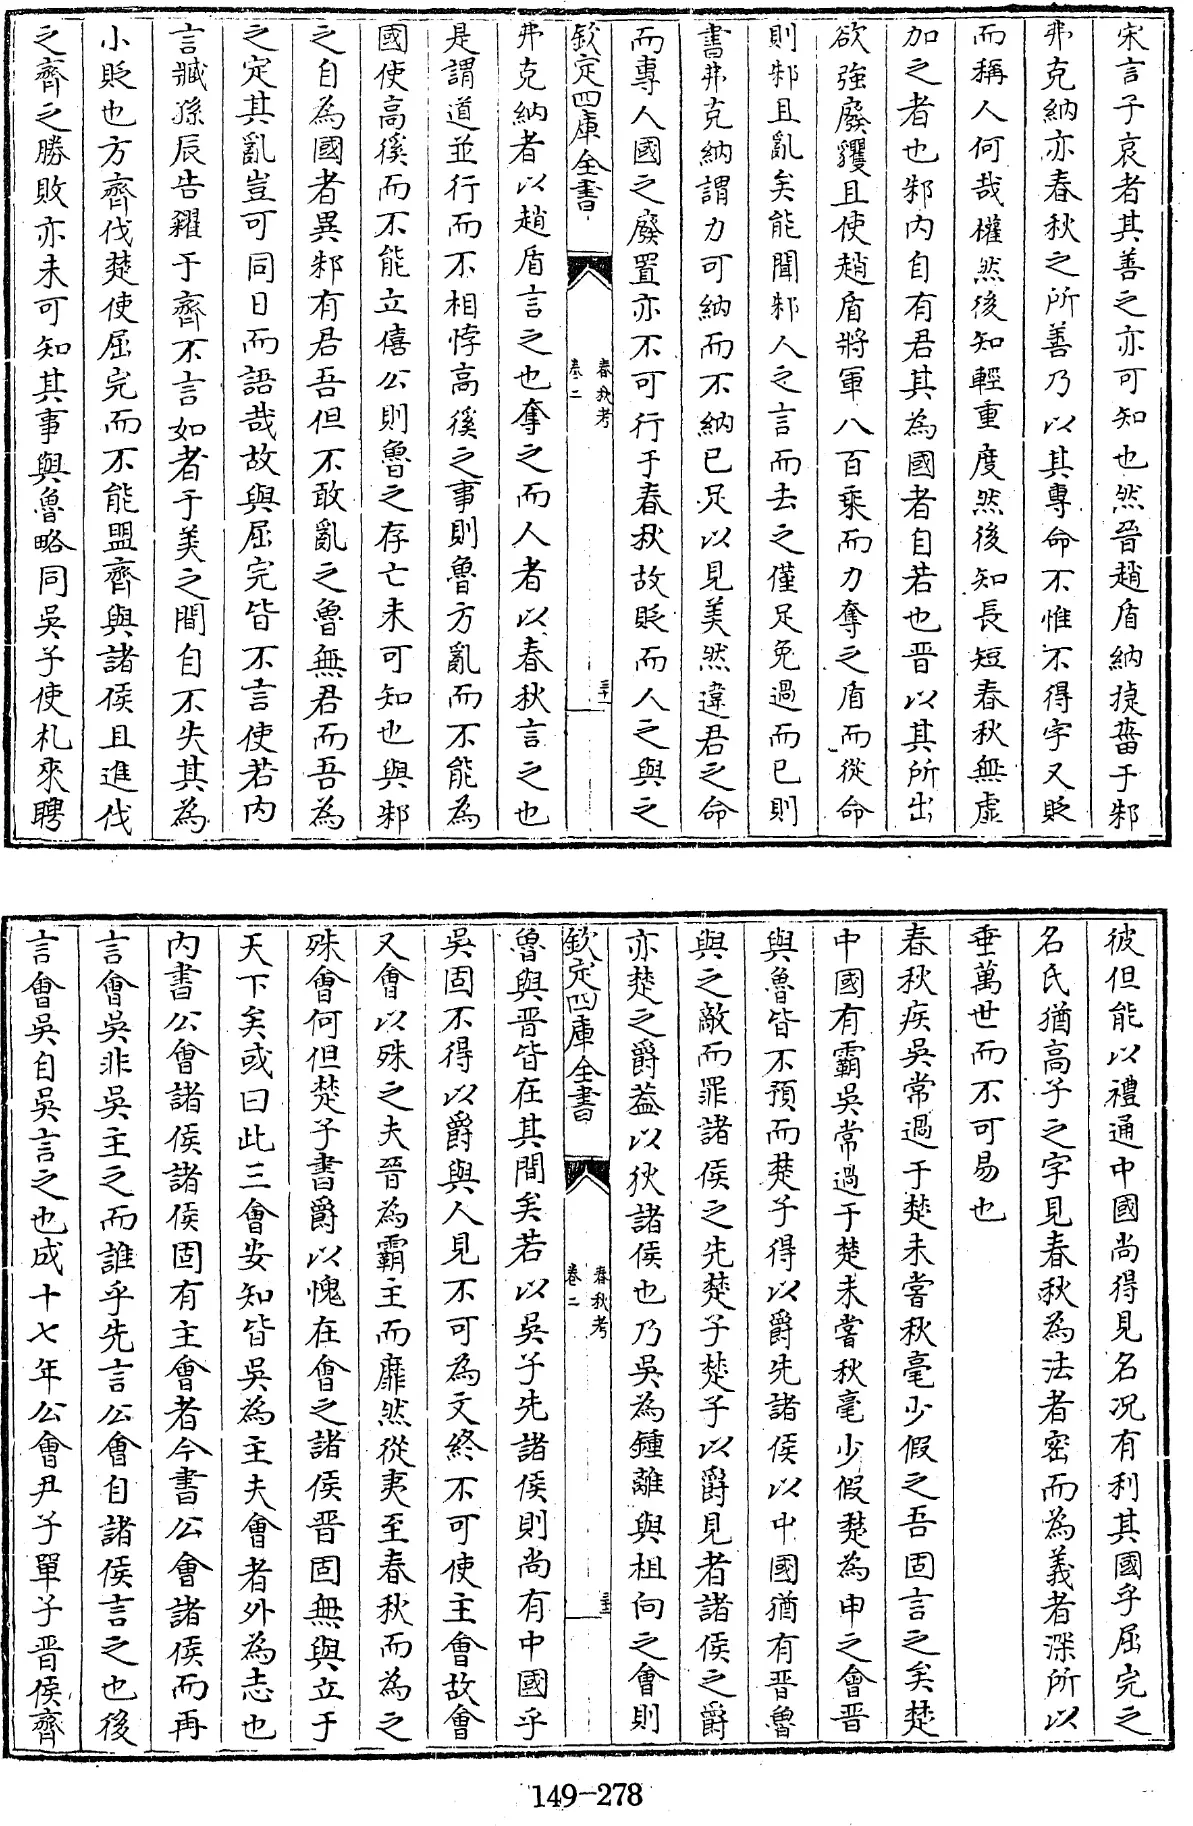 宋言子哀者其善之亦可知也然晉趙盾納捷菑于邾
弗克納亦春秋之所善乃以其專命不惟不得字又貶
而稱人何哉權然後知輕重度然後知長短春秋無虚
加之者也邾内自有君其為國者自若也晉以其所出
欲強廢貜且使趙盾將軍八百乘而力奪之盾而從命
則邾且亂矣能聞邾人之言而去之僅足免過而已則
書弗克納謂力可納而不納已足以見美然違君之命
而專人國之廢置亦不可行于春秋故貶而人之與之
欽定四庫全書
春秋考
卷二
三十一
弗克納者以趙盾言之也奪之而人者以春秋言之也
是謂道並行而不相悖高徯之事則魯方亂而不能為
國使高徯而不能立僖公則魯之存亡未可知也與邾
之自為國者異邾有君吾但不敢亂之魯無君而吾為
之定其亂豈可同日而語哉故與屈完皆不言使若内
言臧孫辰告糴于齊不言如者于美之間自不失其為
小貶也方齊伐楚使屈完而不能盟齊與諸侯且進伐
之齊之勝敗亦未可知其事與魯略同吳子使札來聘
彼但能以禮通中國尚得見名况有利其國乎屈完之
名氏猶高子之字見春秋為法者密而為義者深所以
垂萬世而不可易也
春秋疾吳常過于楚未嘗秋毫少假之吾固言之矣楚
中國有霸吳常過于楚未嘗秋毫少假楚為申之會晉
與魯皆不預而楚子得以爵先諸侯以中國猶有晉魯
與之敵而罪諸侯之先楚子楚子以爵見者諸侯之爵
亦楚之爵葢以狄諸侯也乃吳為鍾離與柤向之會則
欽定四庫全書
春秋考
卷二
三十二
魯與晉皆在其間矣若以吳子先諸侯則尚有中國乎
吳固不得以爵與人見不可為文終不可使主會故會
又會以殊之夫晉為霸主而靡然從夷至春秋而為之
殊會何但楚子書爵以愧在會之諸侯晉固無與立于
天下矣或曰此三會安知皆吳為主夫會者外為志也
内書公會諸侯諸侯固有主會者今書公會諸侯而再
言會吳非吳主之而誰乎先言公會自諸侯言之也後
言會吳自吳言之也成十七年公會尹子單子晉侯齊
149-278